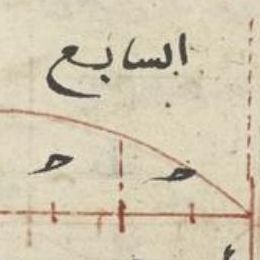 السابع
ح ح